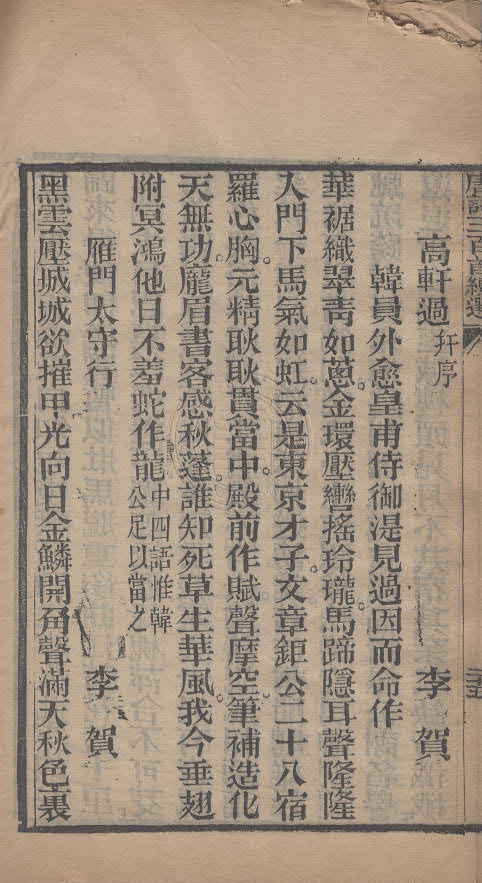 唐詩三百首續選
高軒過 幷序 李賀
韓員外愈皇甫侍御湜見過因而命作
華裾織翠靑如蔥金環壓轡搖玲瓏馬蹄隱耳聲隆隆
入門下馬氣如虹云是東京才子文章鉅公二十八宿
羅心胸元精耿耿貫當中殿前作賦聲摩空筆補造化
天無功龐眉書客感秋蓬誰知死草生華風我今垂翅
附冥鴻他日不羞蛇作龍 中四語惟韓
公足以當之
雁門太守行 李賀
黑雲壓城城欲摧甲光向日金鱗開角聲滿天秋色裏